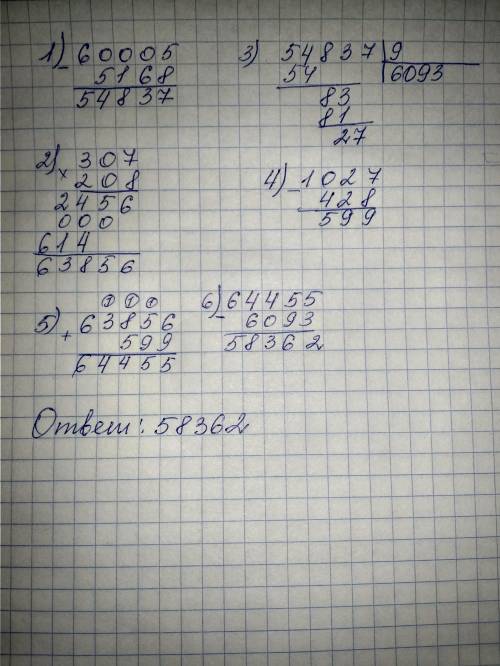 1) 60005
- 5168
54837
3) 54837 | 9
54 | 6093
83
81
27
2) × 307
208
2456
000
614
63856
4) - 1027
428
599
① ① ①
5) + 63856
599
64455
6) - 64455
6093
58362
Ответ: 58362